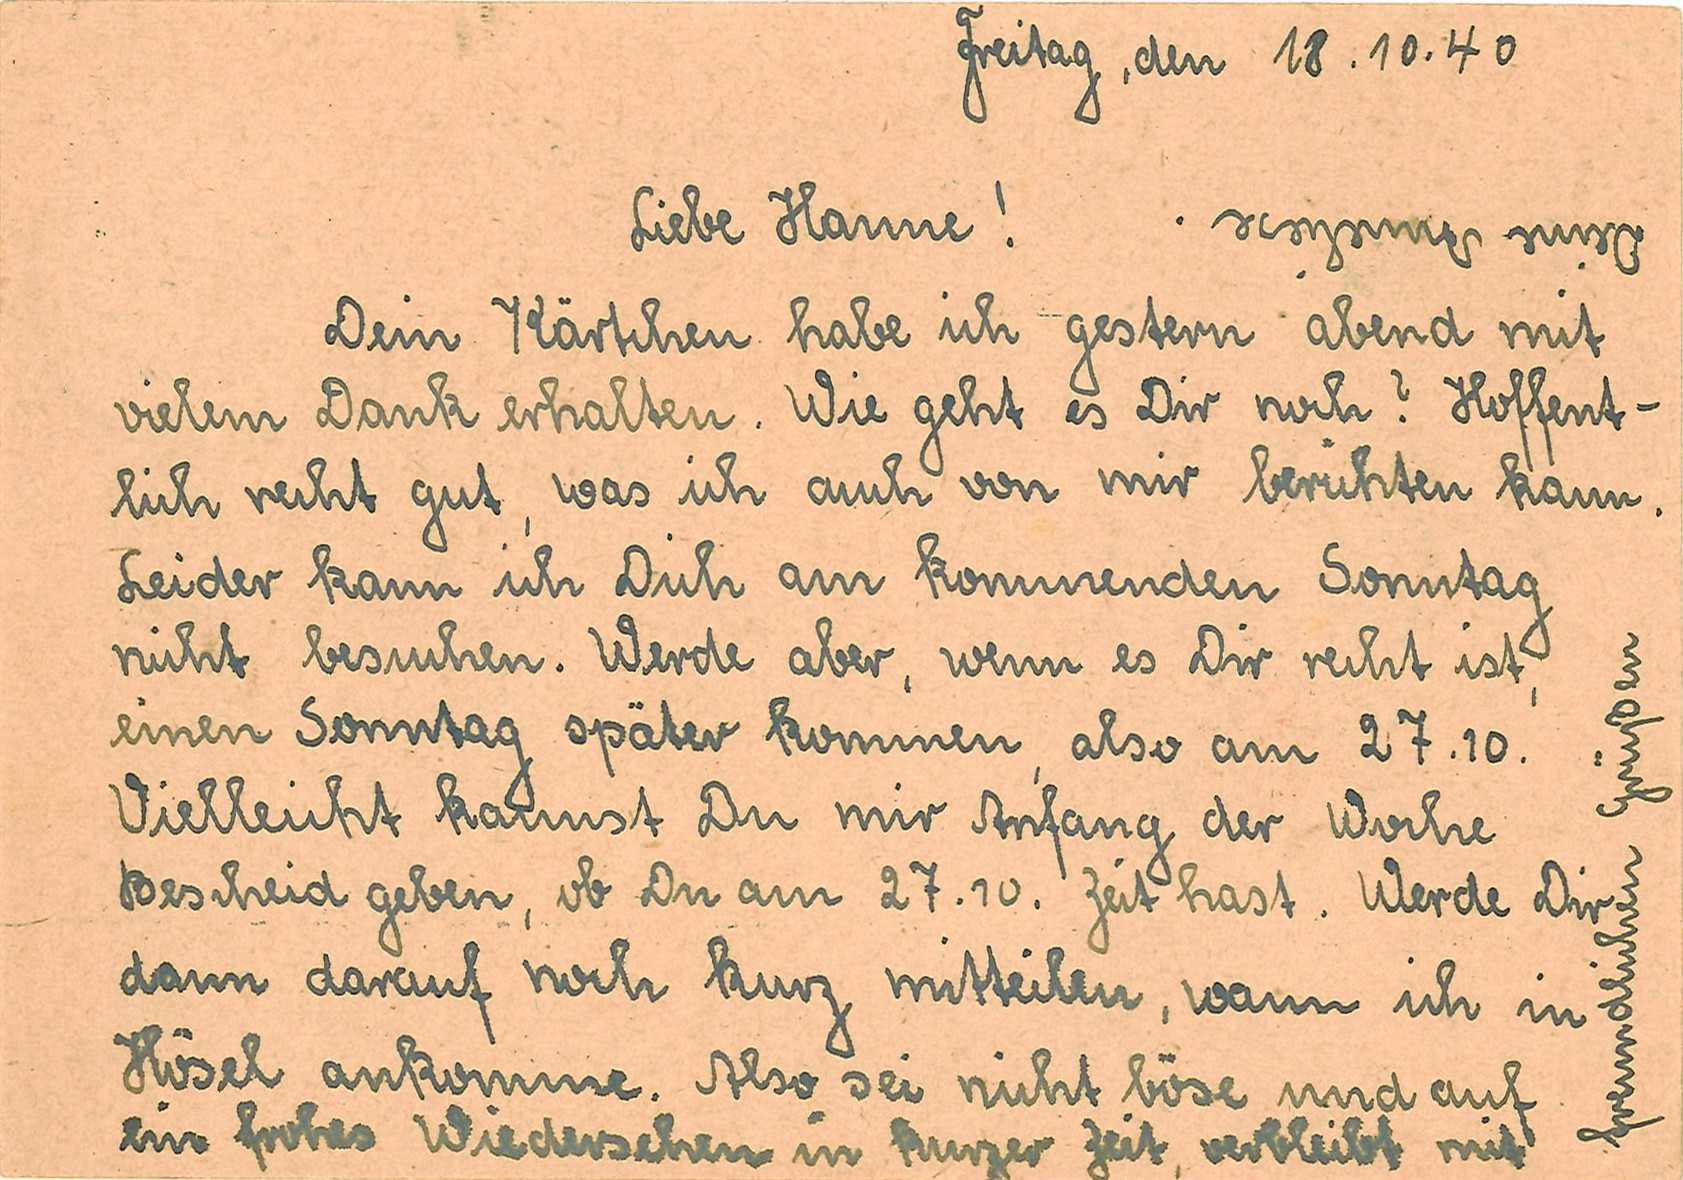 Freitag, den 18.10.40
Liebe Hanne!
Dein Kärtchen habe ich gestern abend mit
vielem Dank erhalten. Wie geht es Dir noch? Hoffent-
lich recht gut, was ich auch von mir berichten kann.
Leider kann ich Dich am kommenden Sonntag
nicht besuchen. Werde aber, wenn es Dir recht ist,
einen Sonntag später kommen, also am 27.10.
Vielleicht kannst Du mir Anfang der Woche
Bescheid geben, ob Du am 27.10. Zeit hast. Werde Dir
dann darauf noch kurz mitteilen, wann ich in
Hösel ankomme. Also sei nicht böse und auf
ein frohes Wiedersehen in kurzer Zeit, verbleibt mit
freundlichen Grüßen
Deine Anneliese.